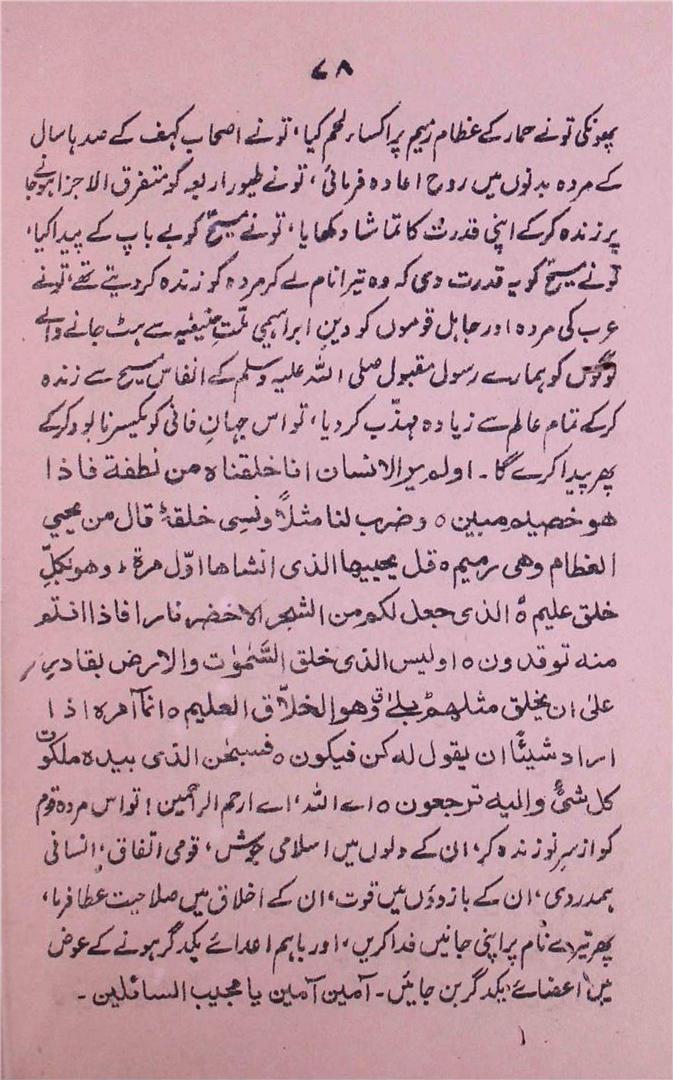 ۷۸
پھونکی تو نے حمار کے عظام رمیم پر اکساء لحم کیا، تو نے اصحاب کہف کے صدہا سال
کے مردہ بدنوں میں روح اعادہ فرمائی، تو نے طیور اربعہ کو متفرق الاجزا ہونے جا
پر زندہ کر کے اپنی قدرت کا تماشا دکھایا، تو نے مسیحؑ کو بے باپ کے پیدا کیا،
تو نے مسیحؑ کو یہ قدرت دی کہ وہ تیرا نام لے کر مردہ کو زندہ کر دیتے تھے، تو نے
عرب کی مردہ اور جاہل قوموں کو دینِ ابراہیمی ملّتِ حنیفیہ سے ہٹ جانے والے
لوگوں کو ہمارے رسول مقبول صلی اللہ علیہ وسلم کے انفاس مسیح سے زندہ
کر کے تمام عالم سے زیادہ مہذّب کر دیا، تو اس جہانِ فانی کو یکسر نابود کر کے
پھر پیدا کرے گا۔ اولم یر الانسان انا خلقناہ من نطفة فاذا
ھو خصیم مبین ہ وضرب لنا مثلاً ونسی خلقہٗ قال من یحیی
العظام وھی رمیم ہ قل یحییھا الذی انشاھا اوّل مرة ؕ وھو بکلِّ
خلق علیم ہٗ الذی جعل لکم من الشجر الاخضر نارا فاذا انتم
منہ توقدون ہ اولیس الذی خلق السَّمٰوٰت والارض بقادرٍ
علیٰ ان یخلق مثلھمؕ بلیٰ ق وھو الخلاّق العلیم ہ انمآ امرہ اذا
اراد شیئًا ان یقول لہ کن فیکون ہ فسبحٰن الذی بیدہ ملکوت
کل شیٍٔ والیہ ترجعون ہ اے اللہ، اے ارحم الراحمین! تو اس مردہ قوم
کو از سرِ نو زندہ کر، ان کے دلوں میں اسلامی جوش، قومی اتفاق، انسانی
ہمدردی، ان کے بازوؤں میں قوت، ان کے اخلاق میں صلاحیت عطا فرما،
پھر تیرے نام پر اپنی جانیں فدا کریں، اور باہم اعدائے یکدگر ہونے کے عوض
میں اعضائے یکدگر بن جائیں۔ آمین آمین یا مجیب السائلین۔